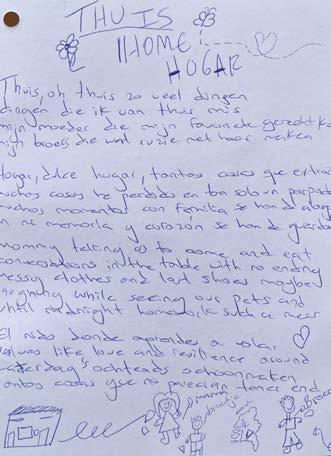 THUIS
HOME
HOGAR
Thuis, oh thuis zo veel dingen
dingen die ik van thuis mis
mijn moeder die mijn favoriete gerechten
mijn broers die wat ruzie met haar maken
Hogar, dulce hogar, tantas cosas que extraño
muchas cosas he perdido en tan solo un
muchos momentos con familia se han
en mi memoria y corazon se han
Mommy telling us to come and eat
conversations in the table with no ending
messy clothes and lost shoes maybe
laughing while seeing our pets and
until midnight homework such a mess
El nido donde aprendes a volar
values like love and resilience around
zaterdag's ochtends schoonmaken
tantas cosas que no parecian tener end
mama
broertje
broer